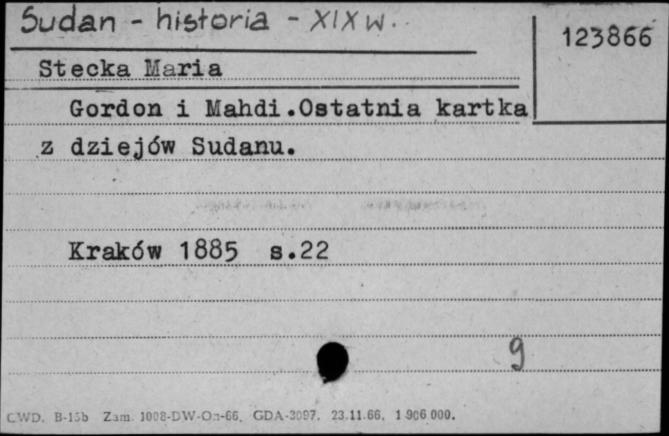 Sudan - historia - XIX w.
123866
Stecka Maria
Gordon i Mahdi.Ostatnia kartka
z dziejów Sudanu.
Kraków 1885 s.22
9
CWD. B-15b Zam. 1008-DW-Oa-66. GDA-3097. 23.11.66. 1 906 000.